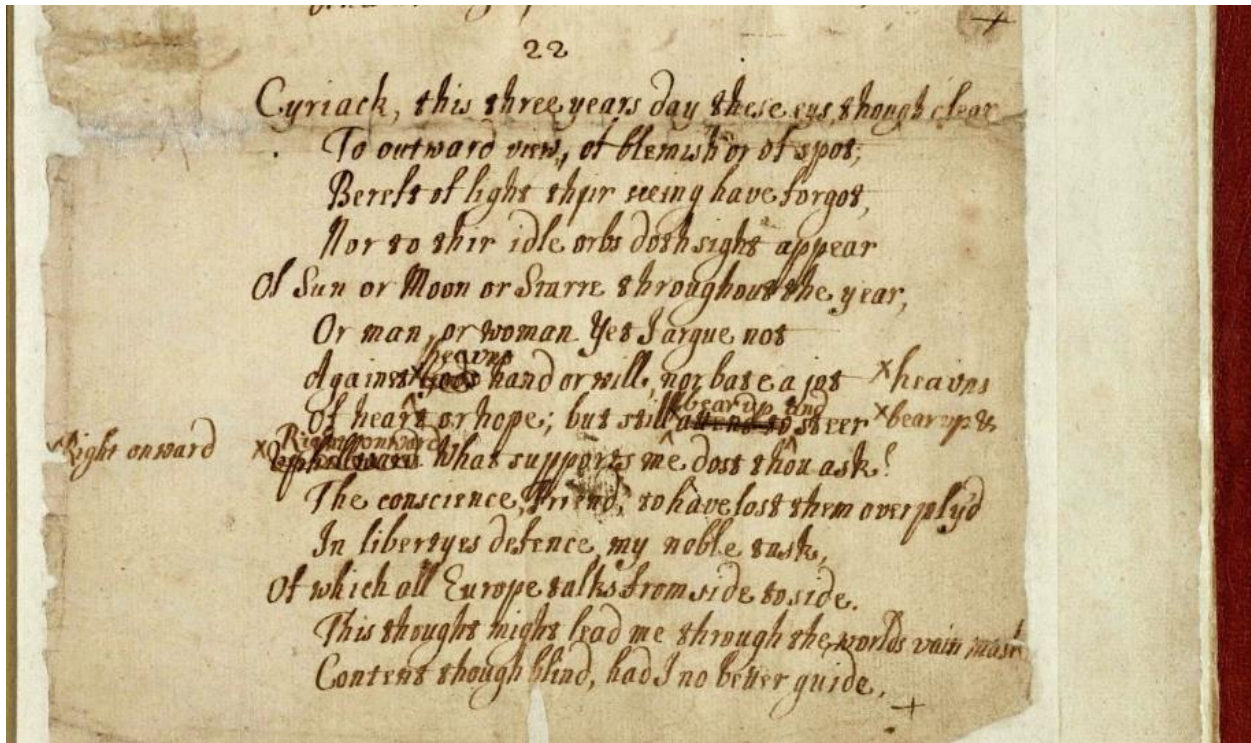 22
Cyriack, this three years day these eys, though clear
To outward view, of blemish or of spot;
Bereft of light thir seeing have forgot,
Nor to thir idle orbs doth sight appear
Of Sun or Moon or Starre throughout the year,
Or man, or woman. Yet I argue not
heavns
Against gods hand or will, nor bate a jot xheavns
bear up and
Of heart or hope; but still attend to steer xbear up &
Right onward
Right onward x uphillward. What supports me dost thou ask?
The conscience, Friend, to have lost them overply'd
In libertyes defence, my noble task,
Of which all Europe talks from side to side.
This thought might lead me through the world's vain mask
Content though blind, had I no better guide.